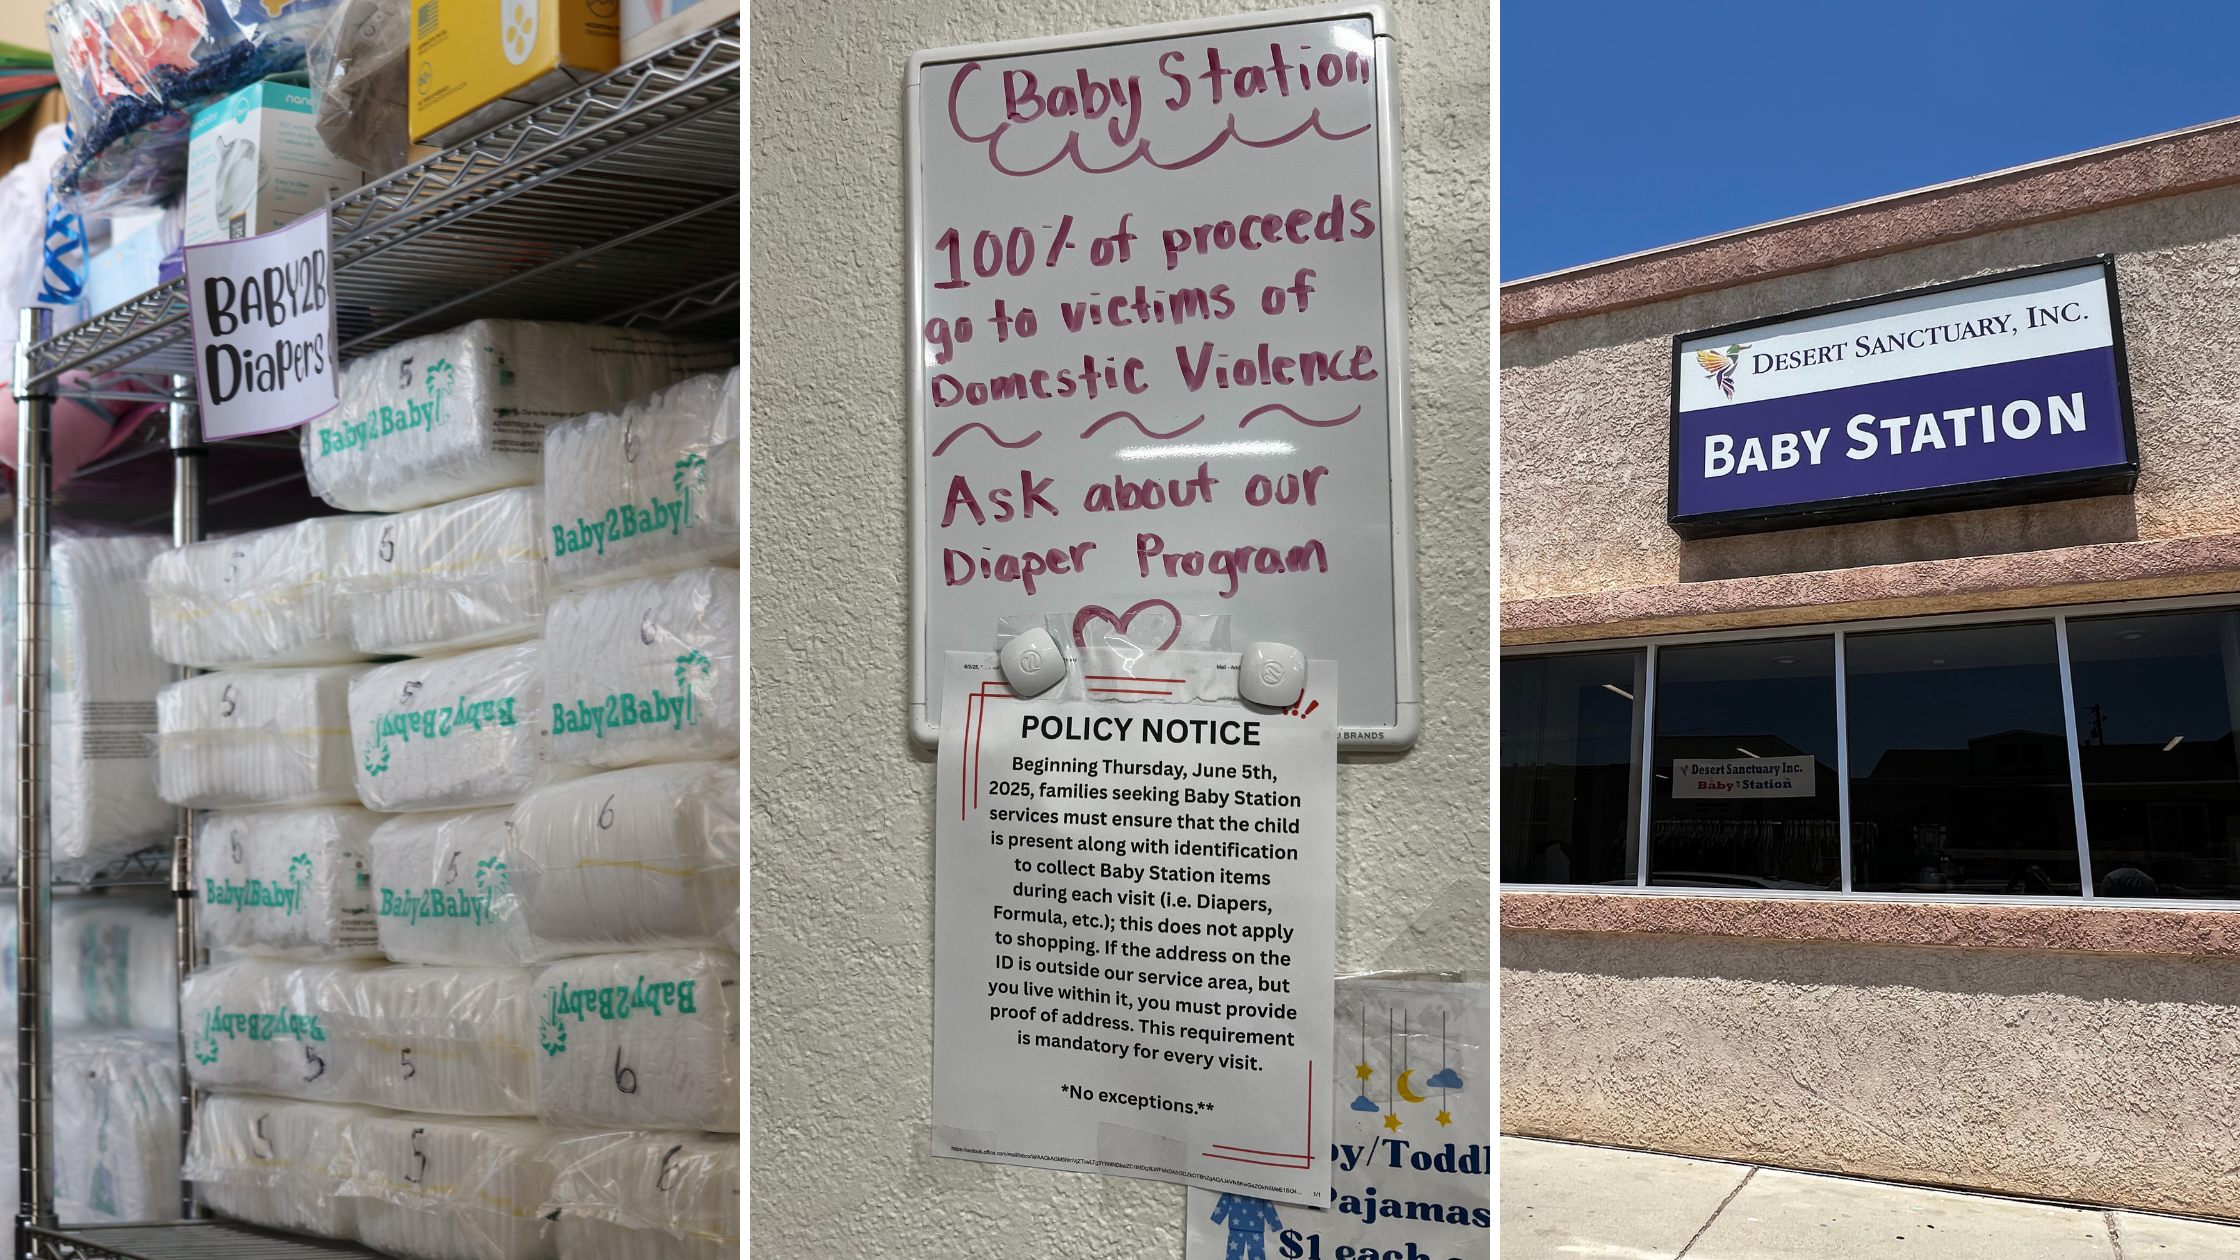 BABY2B
Diapers
5
Baby2Baby
6
Baby2Baby
5
5
6
Baby2Baby
5
5
Baby2Baby
6
Baby2Baby
5
Baby2Baby
6
Baby2Baby
5
5
Baby2Baby
6
5
5
6
Baby Station
100% of proceeds
go to victims of
Domestic Violence
Ask about our
Diaper Program
BRANDS
POLICY NOTICE
Beginning Thursday, June 5th,
2025, families seeking Baby Station
services must ensure that the child
is present along with identification
to collect Baby Station items
during each visit (i.e. Diapers,
Formula, etc.); this does not apply
to shopping. If the address on the
ID is outside our service area, but
you live within it, you must provide
proof of address. This requirement
is mandatory for every visit.
*No exceptions.**
1/1
by/Toddl
Pajamas
$1 each
DESERT SANCTUARY, INC.
BABY STATION
Desert Sanctuary Inc.
Baby Station